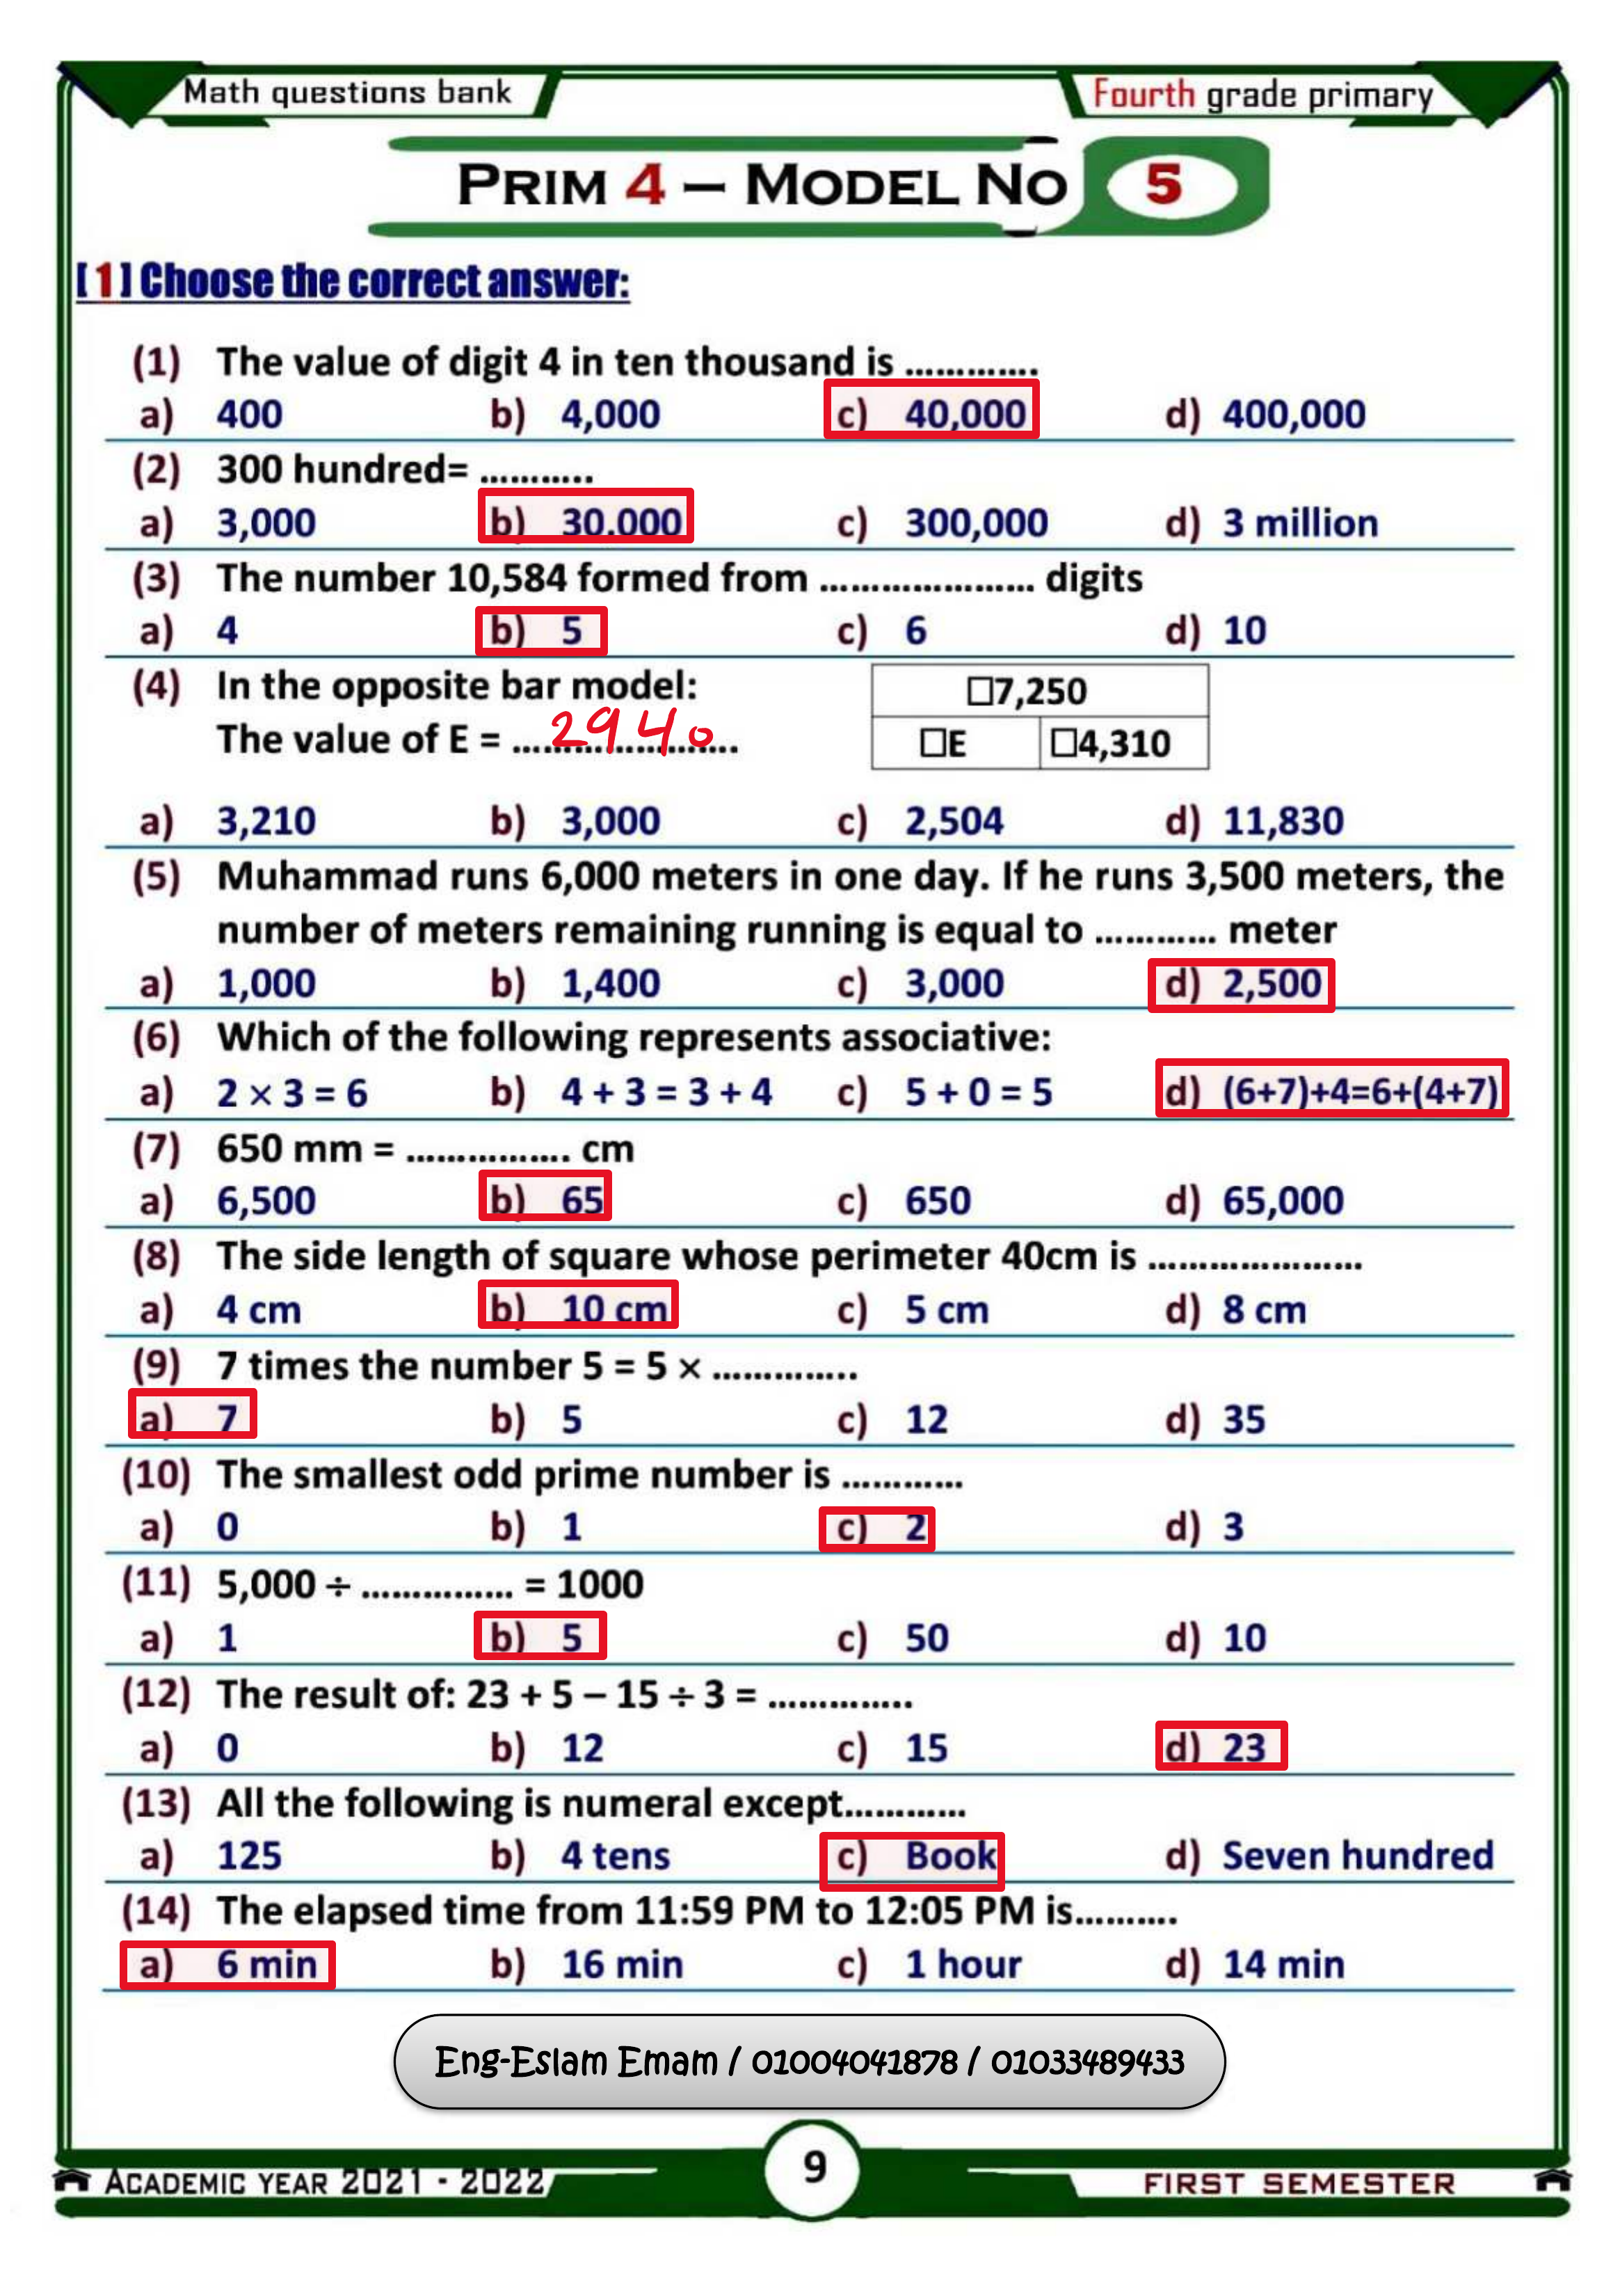 Math questions bank
Fourth grade primary
PRIM 4 – MODEL NO 5
[ 1 ] Choose the correct answer:
(1) The value of digit 4 in ten thousand is .............
a) 400 b) 4,000 c) 40,000 d) 400,000
(2) 300 hundred= ...........
a) 3,000 b) 30.000 c) 300,000 d) 3 million
(3) The number 10,584 formed from ..................... digits
a) 4 b) 5 c) 6 d) 10
(4) In the opposite bar model:
□7,250
The value of E = ...2940...
□E □4,310
a) 3,210 b) 3,000 c) 2,504 d) 11,830
(5) Muhammad runs 6,000 meters in one day. If he runs 3,500 meters, the
number of meters remaining running is equal to ............ meter
a) 1,000 b) 1,400 c) 3,000 d) 2,500
(6) Which of the following represents associative:
a) 2 × 3 = 6 b) 4 + 3 = 3 + 4 c) 5 + 0 = 5 d) (6+7)+4=6+(4+7)
(7) 650 mm = ................ cm
a) 6,500 b) 65 c) 650 d) 65,000
(8) The side length of square whose perimeter 40cm is .....................
a) 4 cm b) 10 cm c) 5 cm d) 8 cm
(9) 7 times the number 5 = 5 × ..............
a) 7 b) 5 c) 12 d) 35
(10) The smallest odd prime number is ............
a) 0 b) 1 c) 2 d) 3
(11) 5,000 ÷ ............... = 1000
a) 1 b) 5 c) 50 d) 10
(12) The result of: 23 + 5 – 15 ÷ 3 = ..............
a) 0 b) 12 c) 15 d) 23
(13) All the following is numeral except............
a) 125 b) 4 tens c) Book d) Seven hundred
(14) The elapsed time from 11:59 PM to 12:05 PM is..........
a) 6 min b) 16 min c) 1 hour d) 14 min
Eng-Eslam Emam / 01004041878 / 01033489433
ACADEMIC YEAR 2021 - 2022
9
FIRST SEMESTER